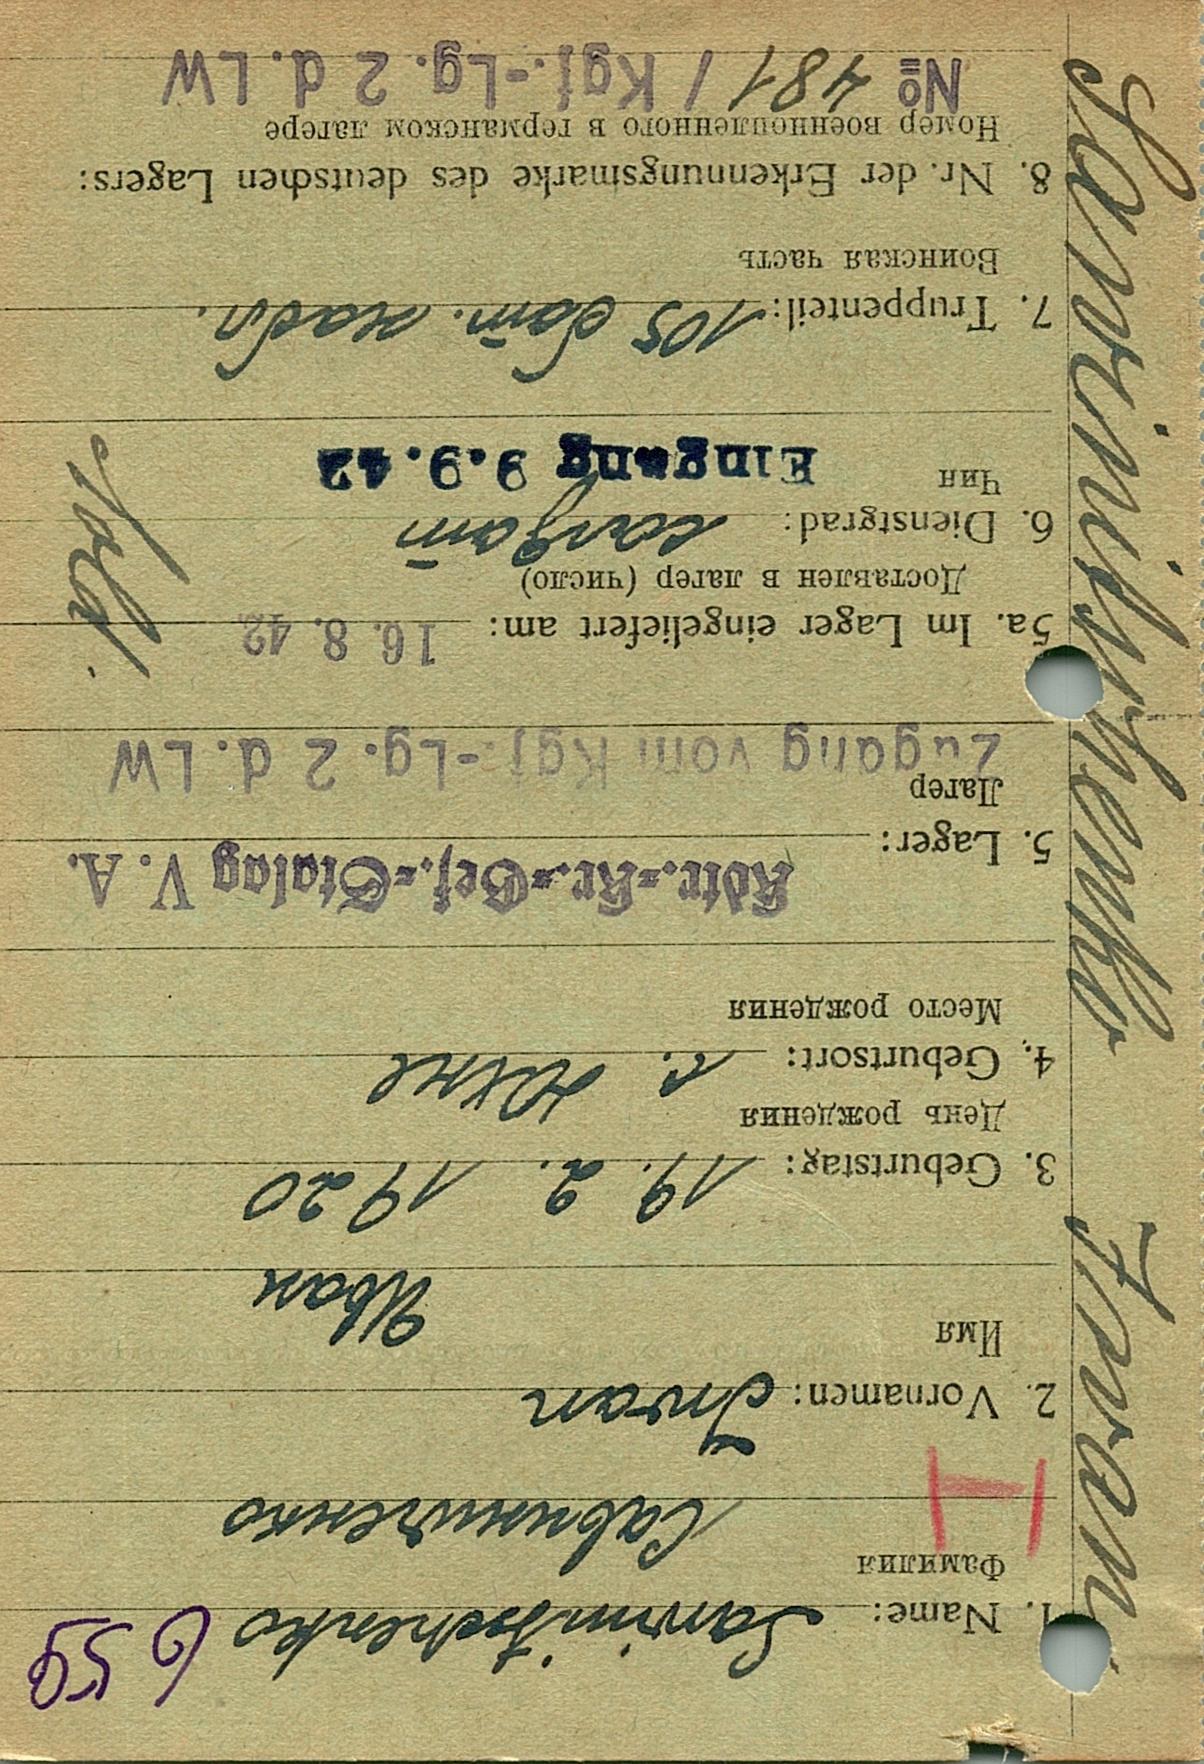 Sawinitschenko Iwan
659
1. Name: Sawinitschenko
Фамилия
Савиниченко
H
2. Vornamen: Iwan
Имя
Иван
3. Geburtstag: 19. 2. 1920
День рождения
4. Geburtsort: с.
Место рождения
Kdtr.-Kr.-Gef.-Stalag V. A.
5. Lager:
Лагер
Zugang vom Kgf.-Lg. 2 d. LW
5a. Im Lager eingeliefert am: 16. 8. 42
Доставлен в лагер (число)
Sold.
6. Dienstgrad: солдат
Чин
Eingang 9.9.42
7. Truppenteil: 105 бат.
Воинская часть
8. Nr. der Erkennungsmarke des deutschen Lagers:
Номер военнопленного в германском лагере
№ 481 / Kgf.-Lg. 2 d. LW